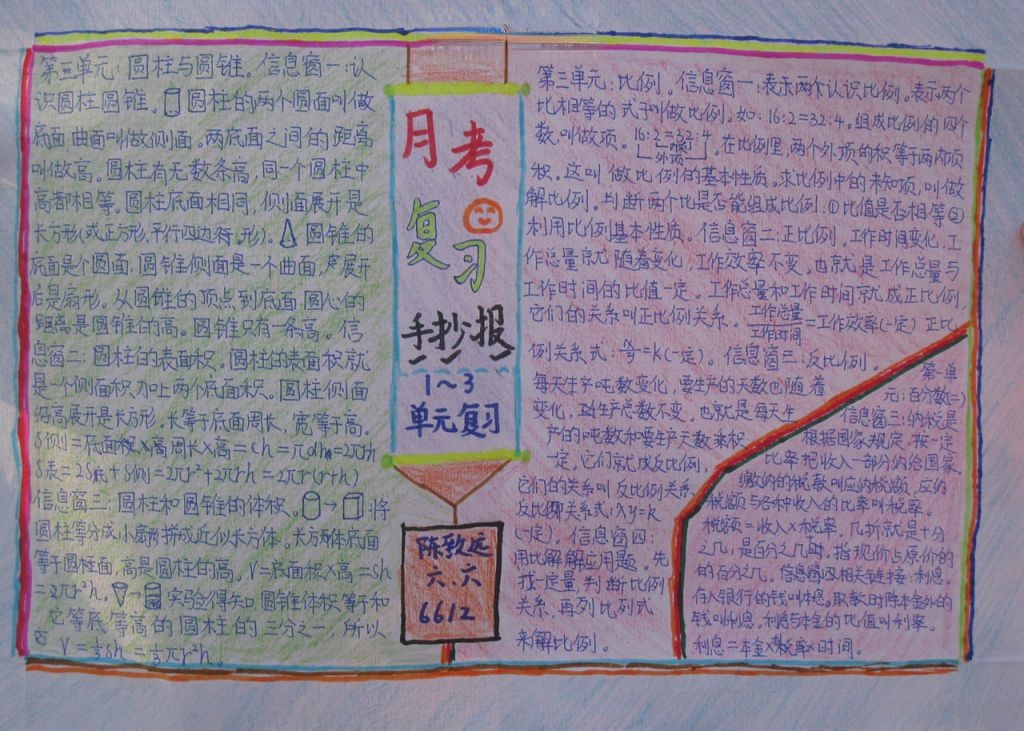 第二单元:圆柱与圆锥。信息窗一:认
识圆柱圆锥。圆柱的两个圆面叫做
底面,曲面叫做侧面。两底面之间的距离
叫做高。圆柱有无数条高,同一个圆柱中
高都相等。圆柱底面相同,侧面展开是
长方形(或正方形,平行四边形)。圆锥的
底面是个圆面,圆锥侧面是一个曲面,展开
后是扇形。从圆锥的顶点到底面圆心的
距离是圆锥的高。圆锥只有一条高。信
息窗二:圆柱的表面积。圆柱的表面积就
是一个侧面积加上两个底面积。圆柱侧面
沿高展开是长方形,长等于底面周长,宽等于高。
S侧=底面周长×高=ch=πdh=2πrh
S表=2S底+S侧=2πr²+2πrh=2πr(r+h)
信息窗三:圆柱和圆锥的体积。→将
圆柱等分成小扇形拼成近似长方体。长方体底面
等于圆柱面,高是圆柱的高。V=底面积×高=sh
=πr²h。→实验得知,圆锥体积等于和
它等底等高的圆柱的三分之一,所以
V=⅓sh=⅓πr²h。
月考
复习
手抄报
1~3
单元复习
陈致远
六.六
6612
第三单元:比例。信息窗一:表示两个认识比例。表示两个
比相等的式子叫做比例。如:16:2=32:4。组成比例的四个
数,叫做项。16:2=32:4。在比例里,两个外项的积等于两内项
内项
外项
积。这叫做比例的基本性质。求比例中的未知项,叫做
解比例。判断两个比是否能组成比例:①比值是否相等②
利用比例基本性质。信息窗二:正比例。工作时间变化,工
作总量就随着变化,工作效率不变。也就是工作总量与
工作时间的比值一定。工作总量和工作时间就成正比例,
它们的关系叫正比例关系。工作总量/工作时间=工作效率(一定) 正比
例关系式:y/x=k(一定)。信息窗三:反比例。
每天生产吨数变化,要生产的天数也随着
变化,生产总数不变,也就是每天生
产的吨数和要生产天数乘积
一定,它们就成反比例,
它们的关系叫反比例关系
反比例关系式:xy=k
(一定)。信息窗四:
用比解解应用题。先
找一定量,判断比例
关系,再列比例式
来解比例。
第一单
元:百分数(二)
信息窗三:纳税是
根据国家规定,按一定
比率把收入一部分纳给国家
缴纳的税款叫应纳税额,应纳
税额与各种收入的比率叫税率。
税额=收入×税率。几折就是十分
之几,是百分之几时,指现价占原价的
的百分之几。信息窗四相关链接:利息。
存入银行的钱叫本息。取款时除本金外的
钱叫利息。利息与本金的比值叫利率。
利息=本金×税率×时间。